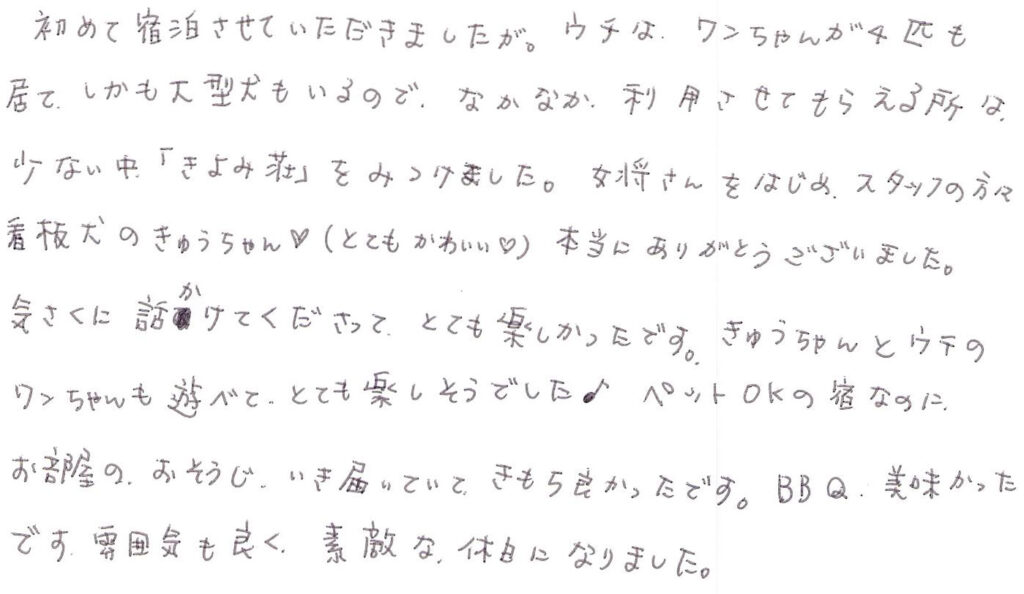 初めて宿泊させていただきましたが。ウチは、ワンちゃんが4匹も
居て、しかも大型犬もいるので、なかなか、利用させてもらえる所は、
少ない中、「きよみ荘」をみつけました。女将さんをはじめ、スタッフの方々
看板犬のきゅうちゃん♡(とてもかわいい♡)本当にありがとうございました。
気さくに話かけてくださって、とても楽しかったです。きゅうちゃんとウチの
ワンちゃんも遊べて、とても楽しそうでした♪ ペットOKの宿なのに、
お部屋の、おそうじ、いき届いていて、きもち良かったです。BBQ、美味かった
です、雰囲気も良く、素敵な、休日になりました。